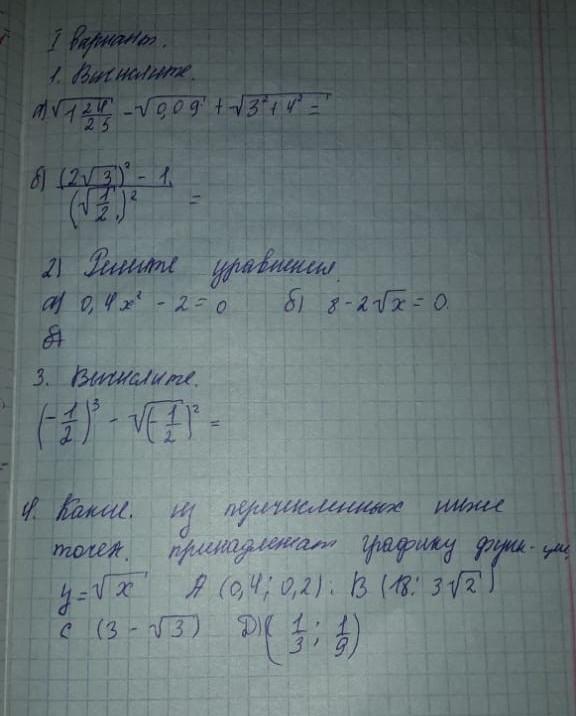 I вариант.
1. Вычислите.
а) √1 24/25 - √0,09 + √3²+4² =
б) (2√3)² - 1 / (√1/2)² =
2) Решите уравнения.
а) 0,4x² - 2 = 0 б) 8 - 2√x = 0.
3. Вычислите.
(-1/2)³ - √(-1/2)² =
4. Какие. из перечисленных ниже
точек. принадлежат графику функ-ции
y = √x A (0,4; 0,2). B (18; 3√2)
C (3 - √3) D) (1/3; 1/9)